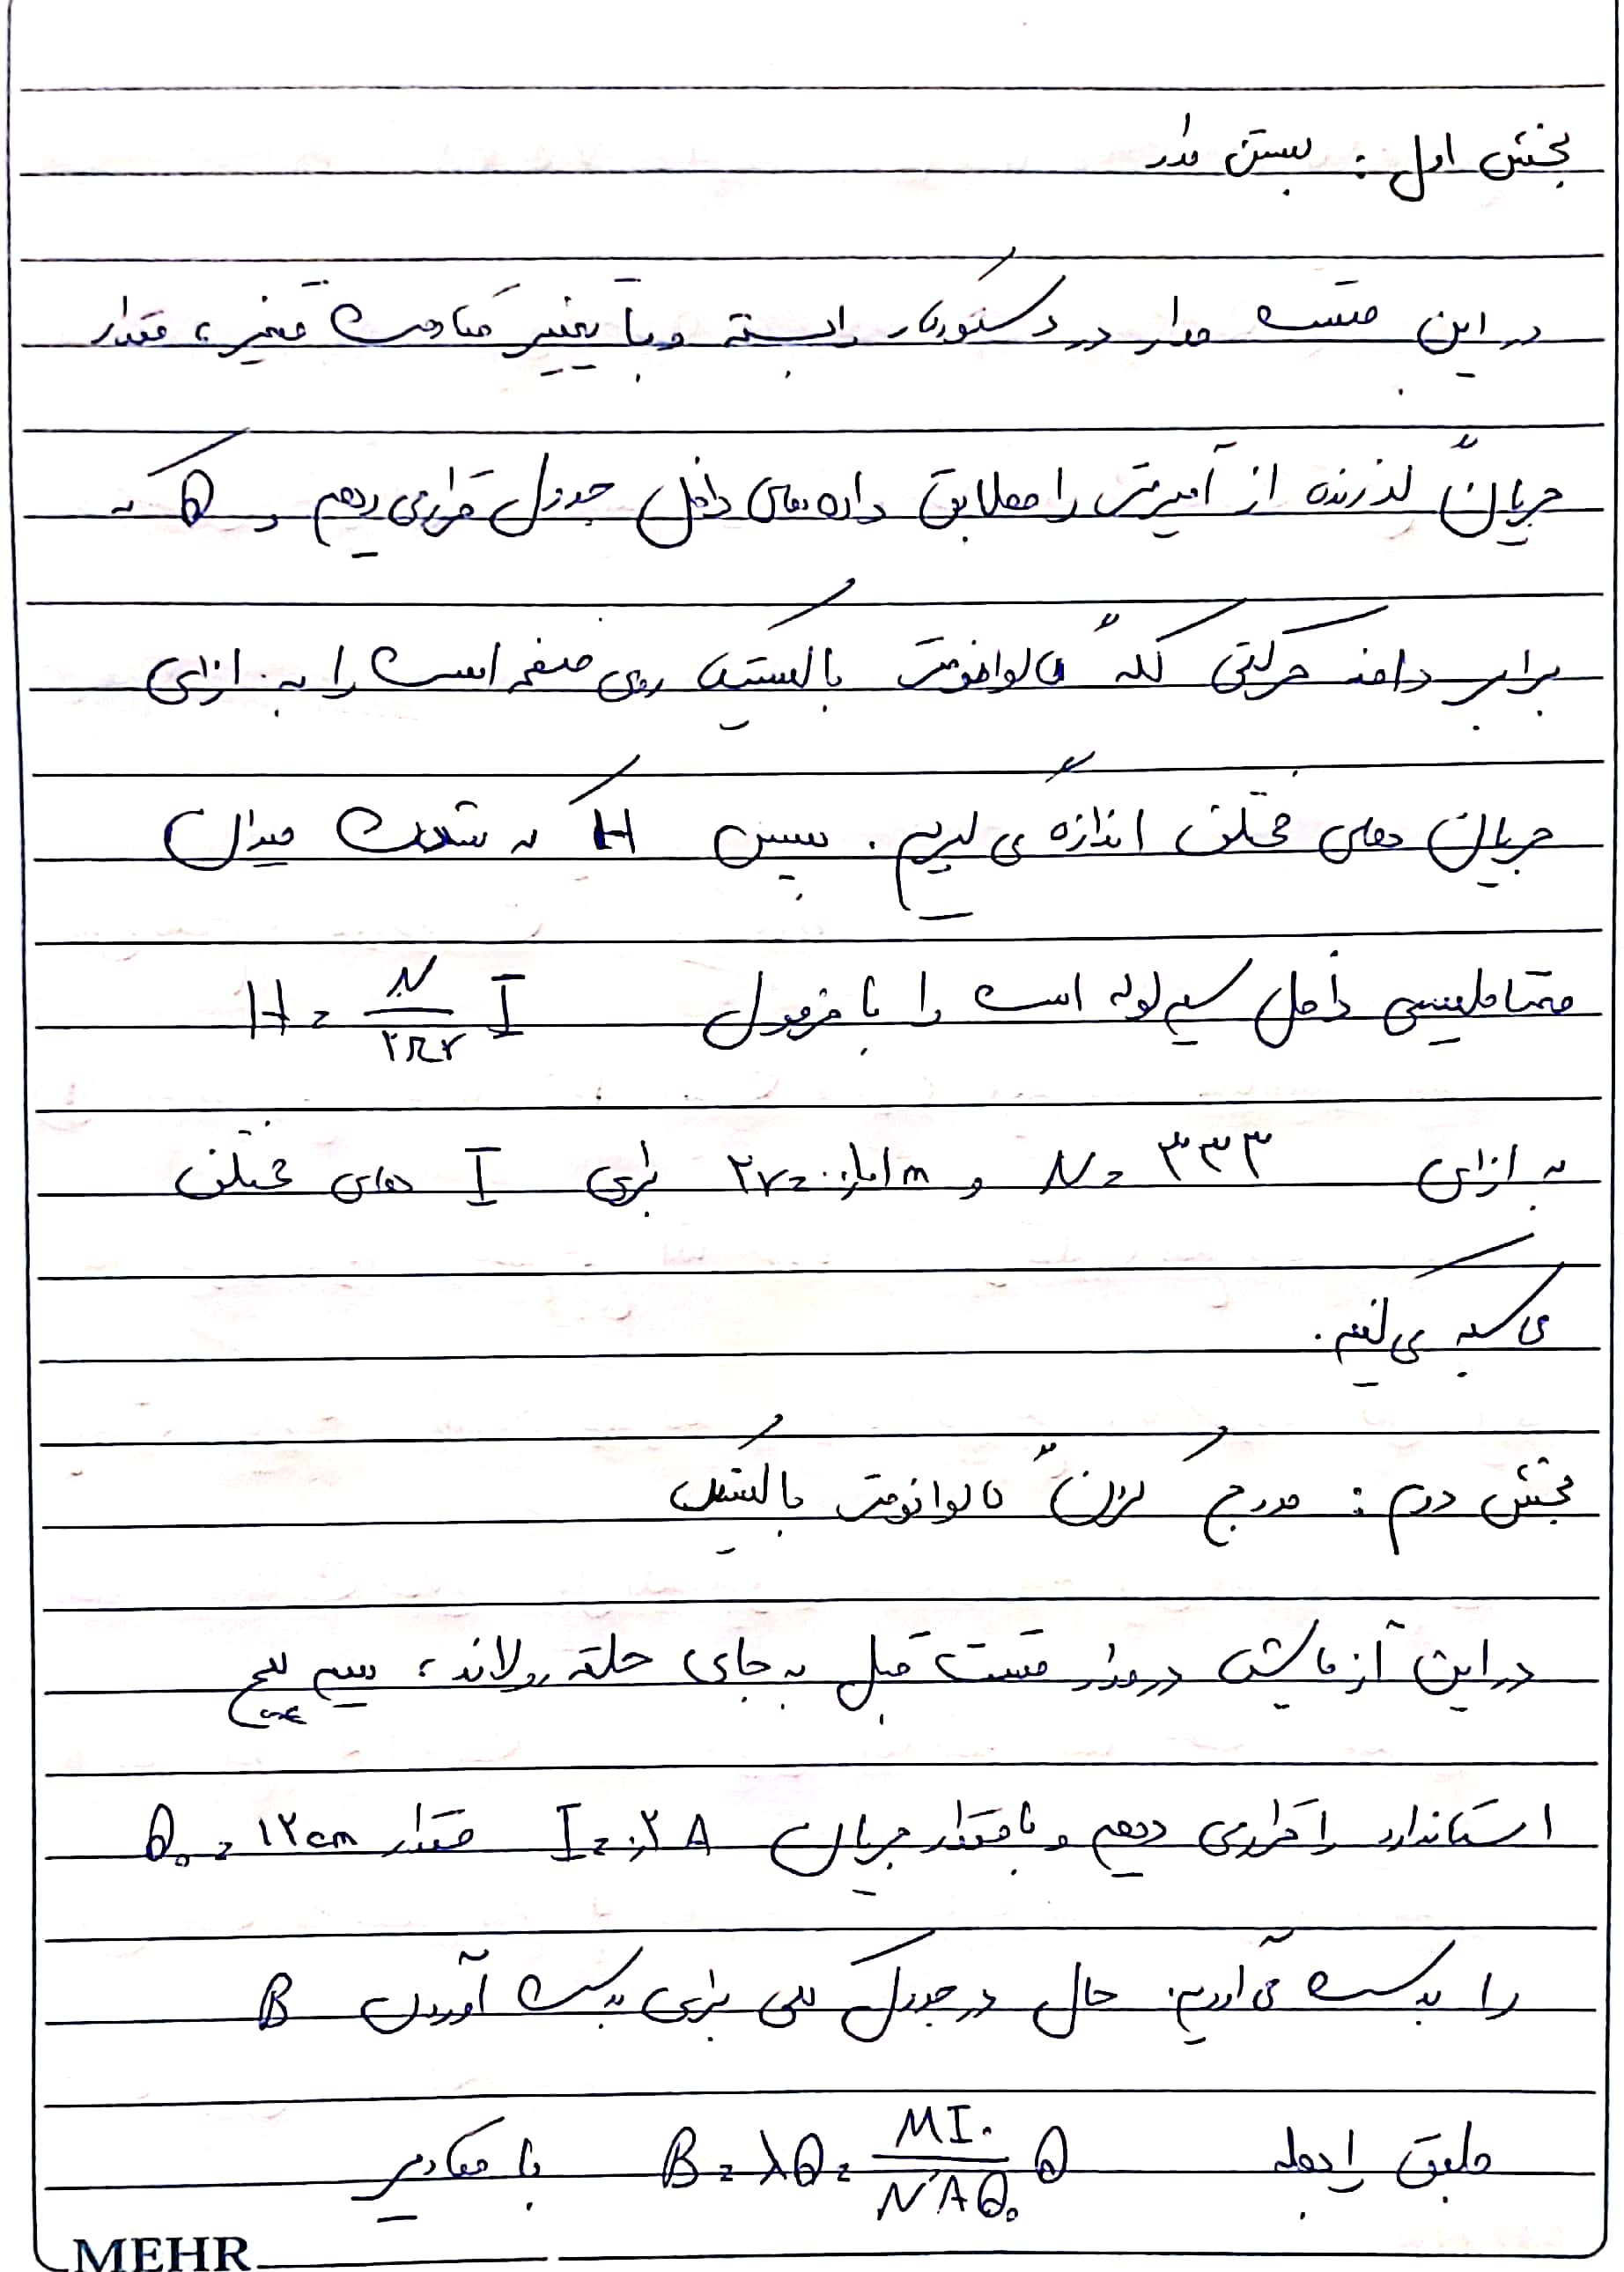 بخش اول : بستن مدار
در این قسمت مدار در دستورکار را بسته و با تغییر مقاومت متغیر، مقدار
جریان گذرنده از آمپرمتر را مطابق داده های داخل جدول قرار می دهیم و θ که
برابر دامنه حرکتی لکه گالوانومتر بالستیک روی صفحه است را به ازای
جریان های مختلف اندازه می گیریم. سپس H که شدت میدان
مغناطیسی داخل سیم لوله است را با فرمول H = N/۲πr I
به ازای N = ۳۳۳ و ۲r = m برای I های مختلف
محاسبه می کنیم.
بخش دوم : مدرج کردن گالوانومتر بالستیک
در این آزمایش در مدار قسمت قبل به جای حلقه رولاند، سیم پیچ
استاندارد را قرار می دهیم و با مقدار جریان I = ۰٫۲ A مقدار θ₀ = ۱۲ cm
را بدست می آوریم. حال در جدول کلی برای بدست آوردن B
طبق رابطه B = λθ = MI₀/N'Aθ₀ θ با مقادیر
MEHR